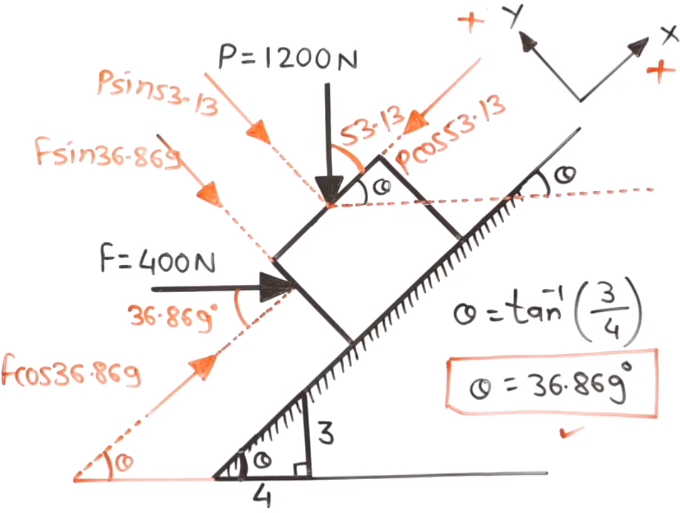 +
Y
X
+
P=1200N
Psin53.13
53.13
Pcos53.13
Fsin36.869
θ
θ
F=400N
36.869°
θ=tan⁻¹(3/4)
Fcos36.869
θ=36.869°
3
θ
θ
4